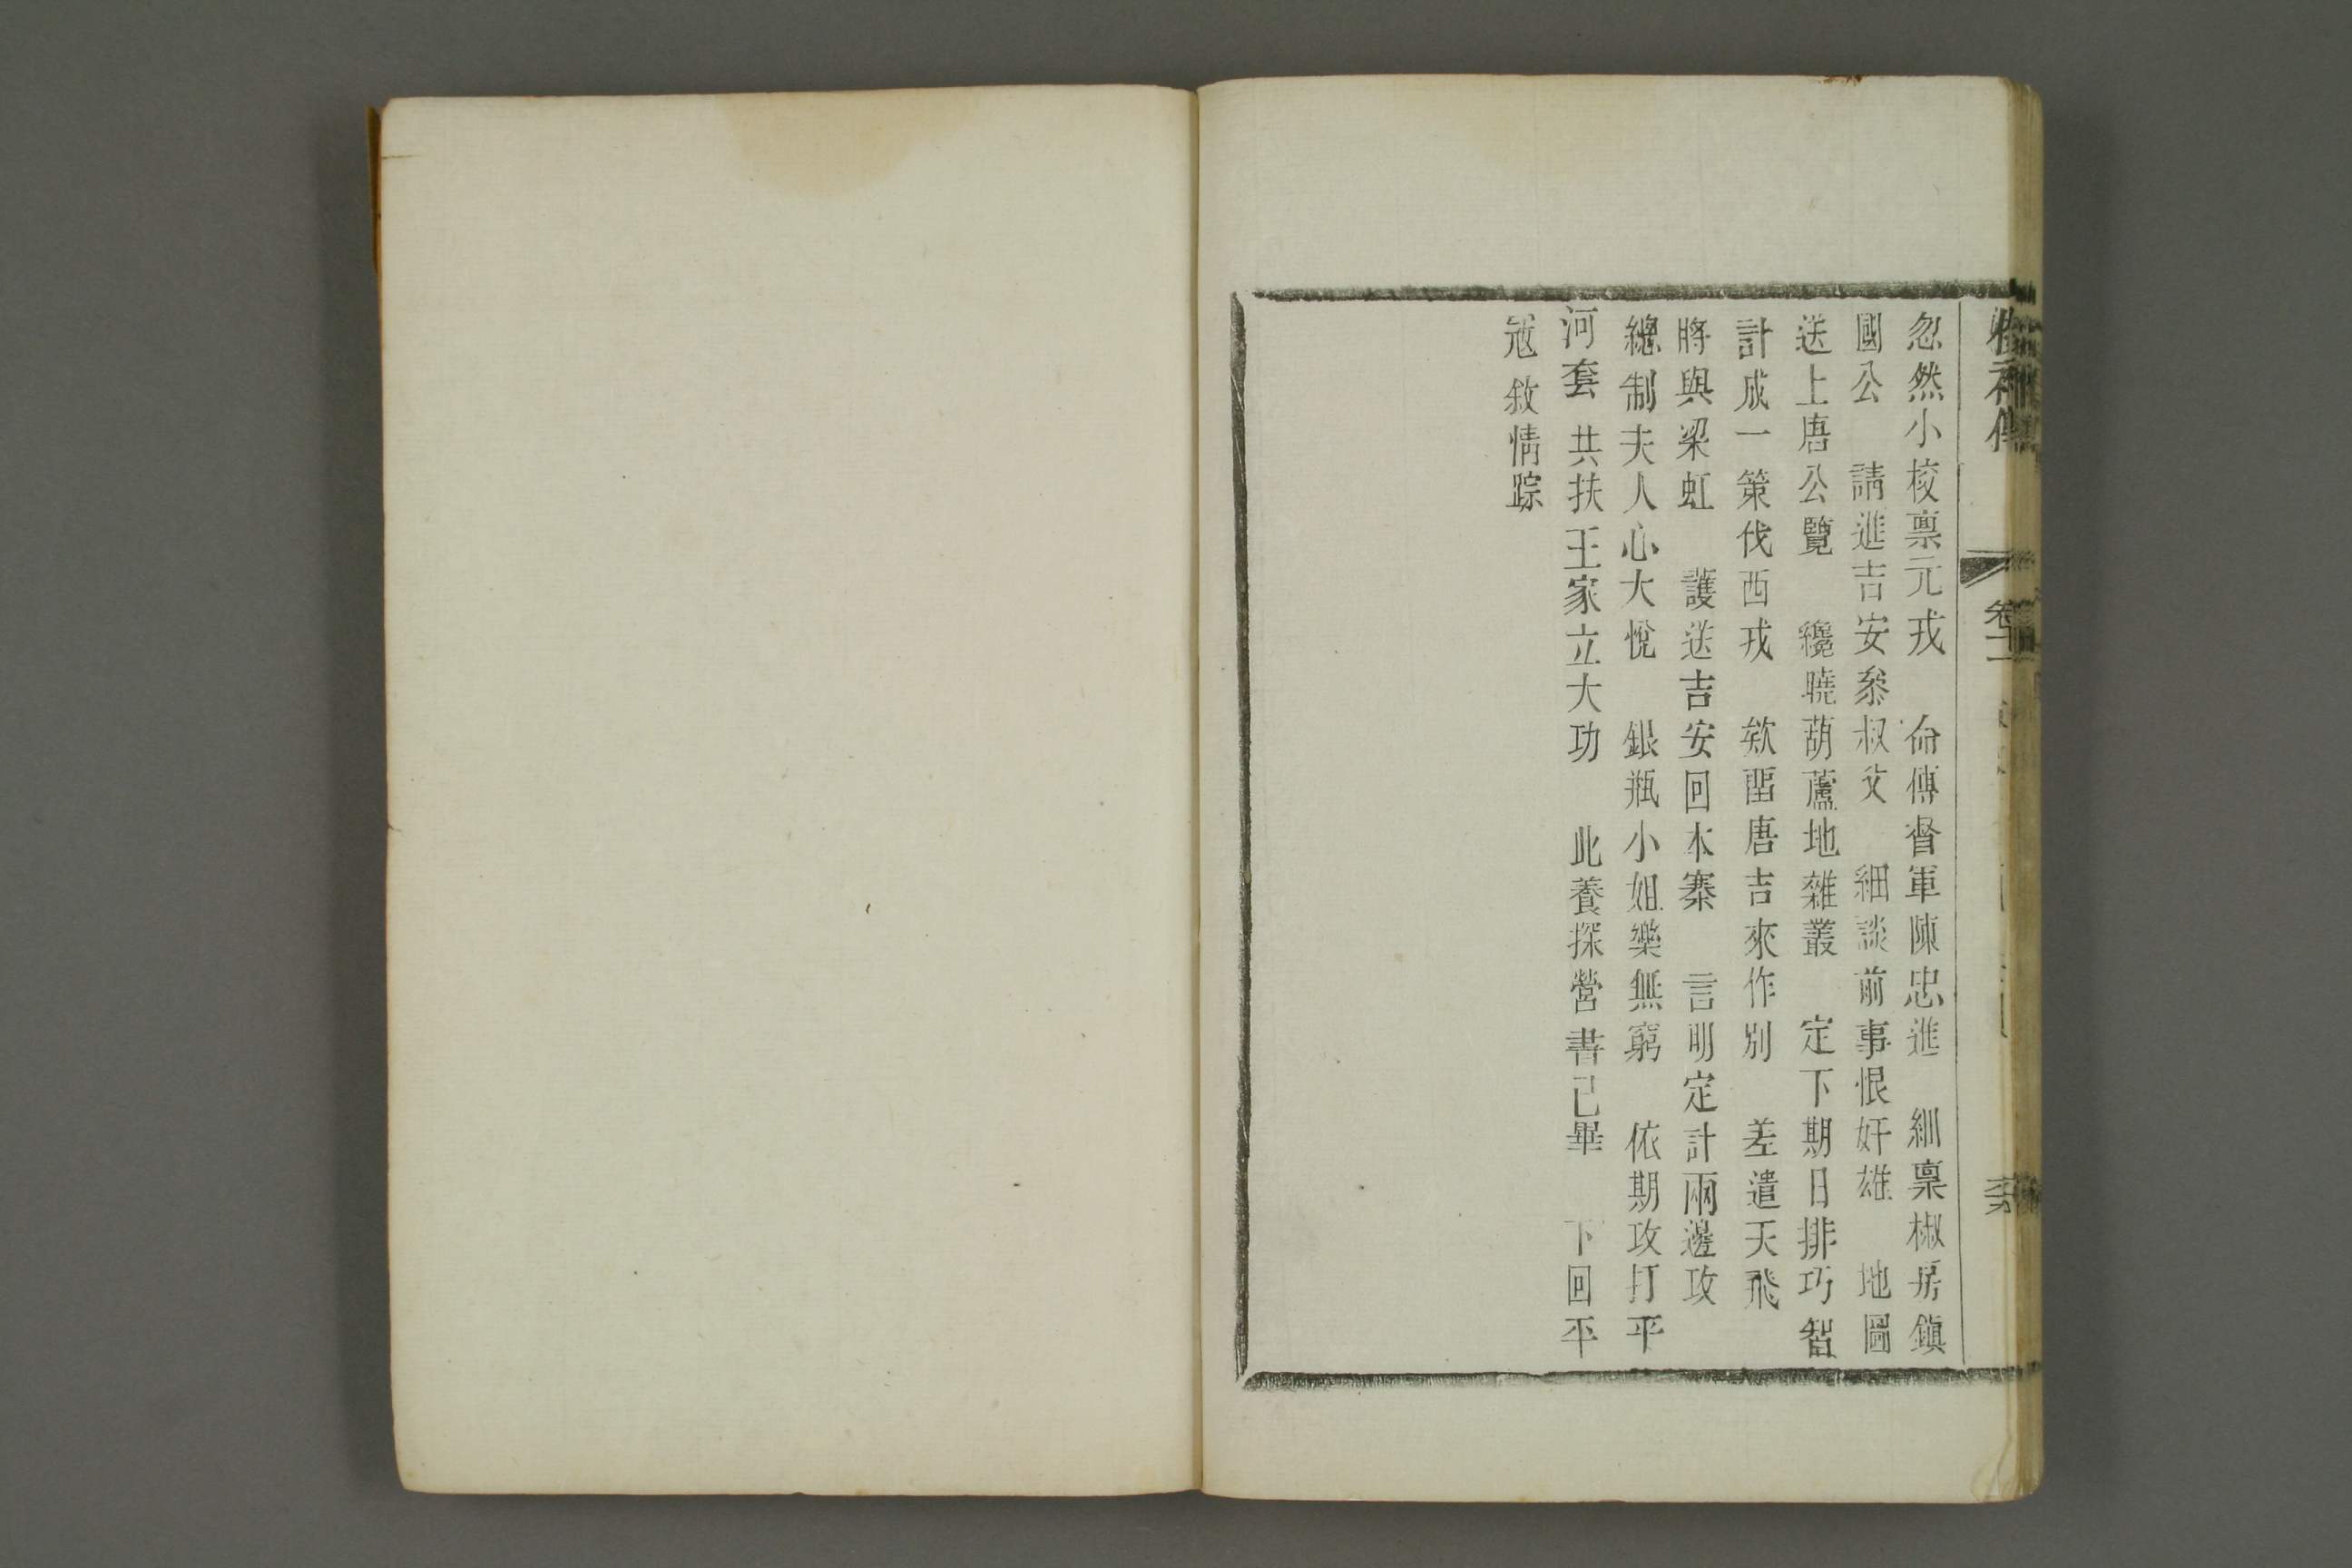 忽然小校禀元戎　命傳督軍陳忠進　細禀椒房鎮
國公　請進吉安叅叔父　細談前事恨奸雄　地圖
送上唐公覽　纔曉葫蘆地雜叢　定下期日排巧智
計成一策伐西戎　欸畱唐吉來作别　差遣天飛
將與梁虹　護送吉安回本寨　言明定計兩邊攻
總制夫人心大悅　銀瓶小姐樂無窮　依期攻打平
河套　共扶王家立大功　此養探營書已畢　下回平
宼敘情踪